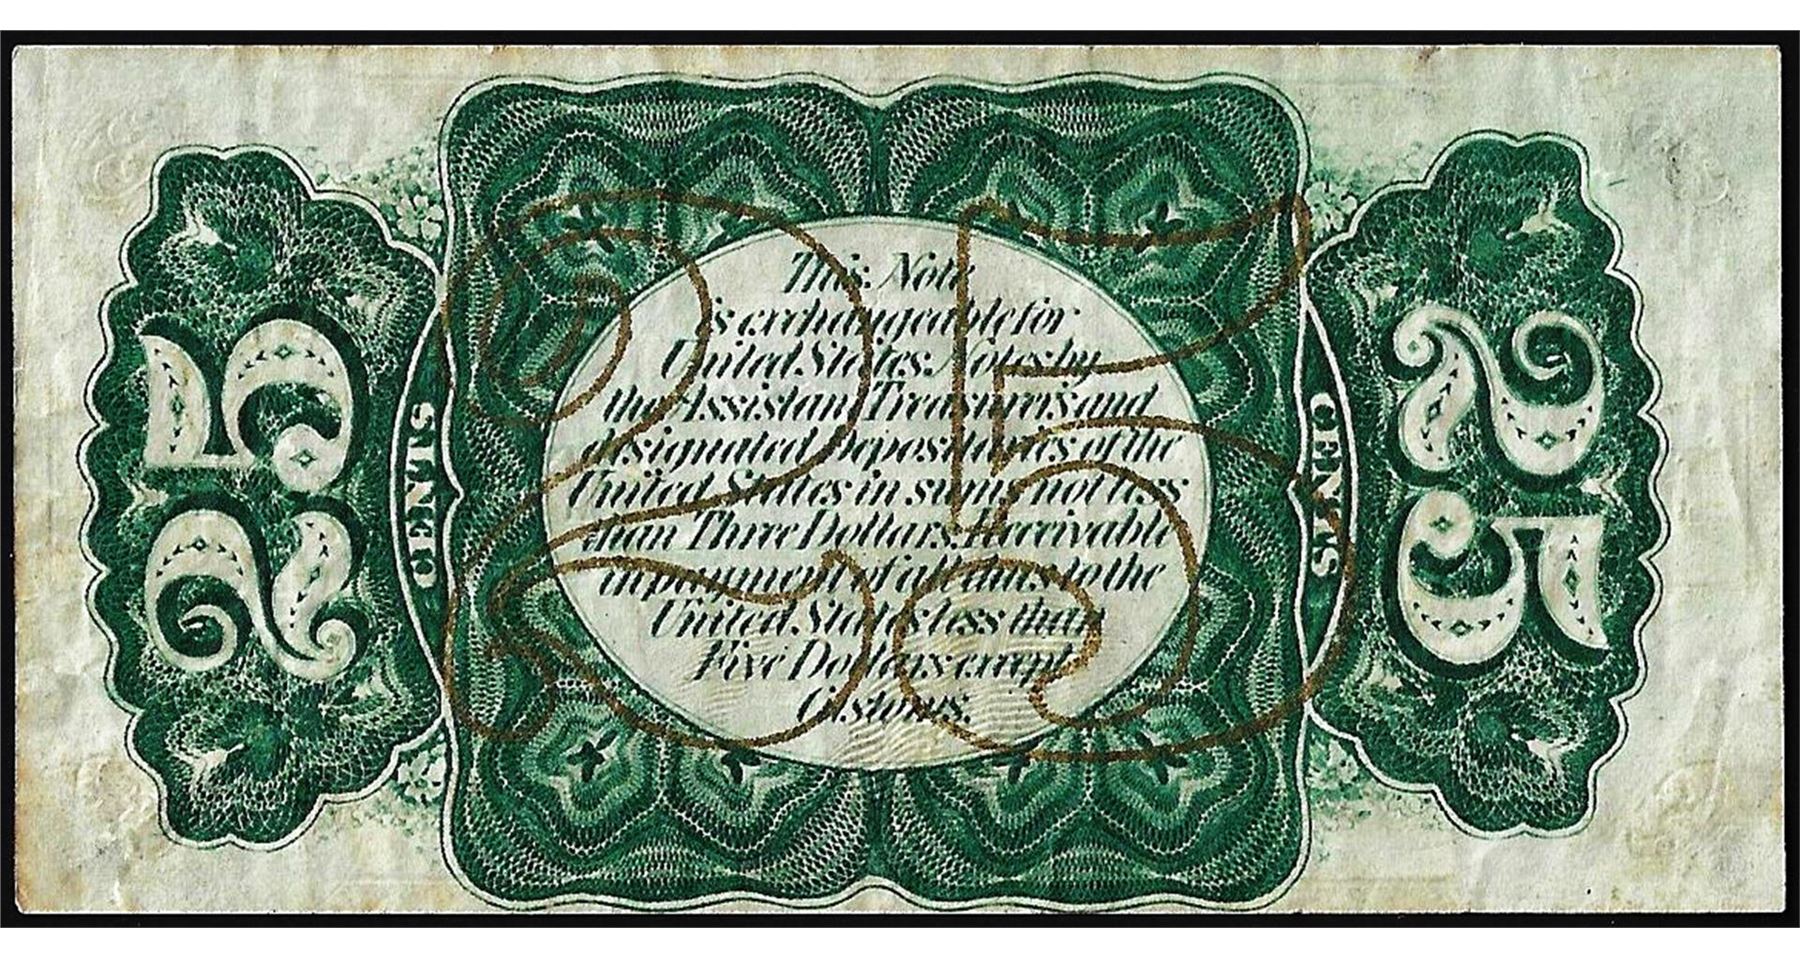 25
CENTS
This Note
is exchangeable for
United States Notes by
the Assistant Treasurers and
designated Depositaries of the
United States in sums not less
than Three Dollars. Receivable
in payment of all dues to the
United States less than
Five Dollars except
Customs.
25
CENTS
25